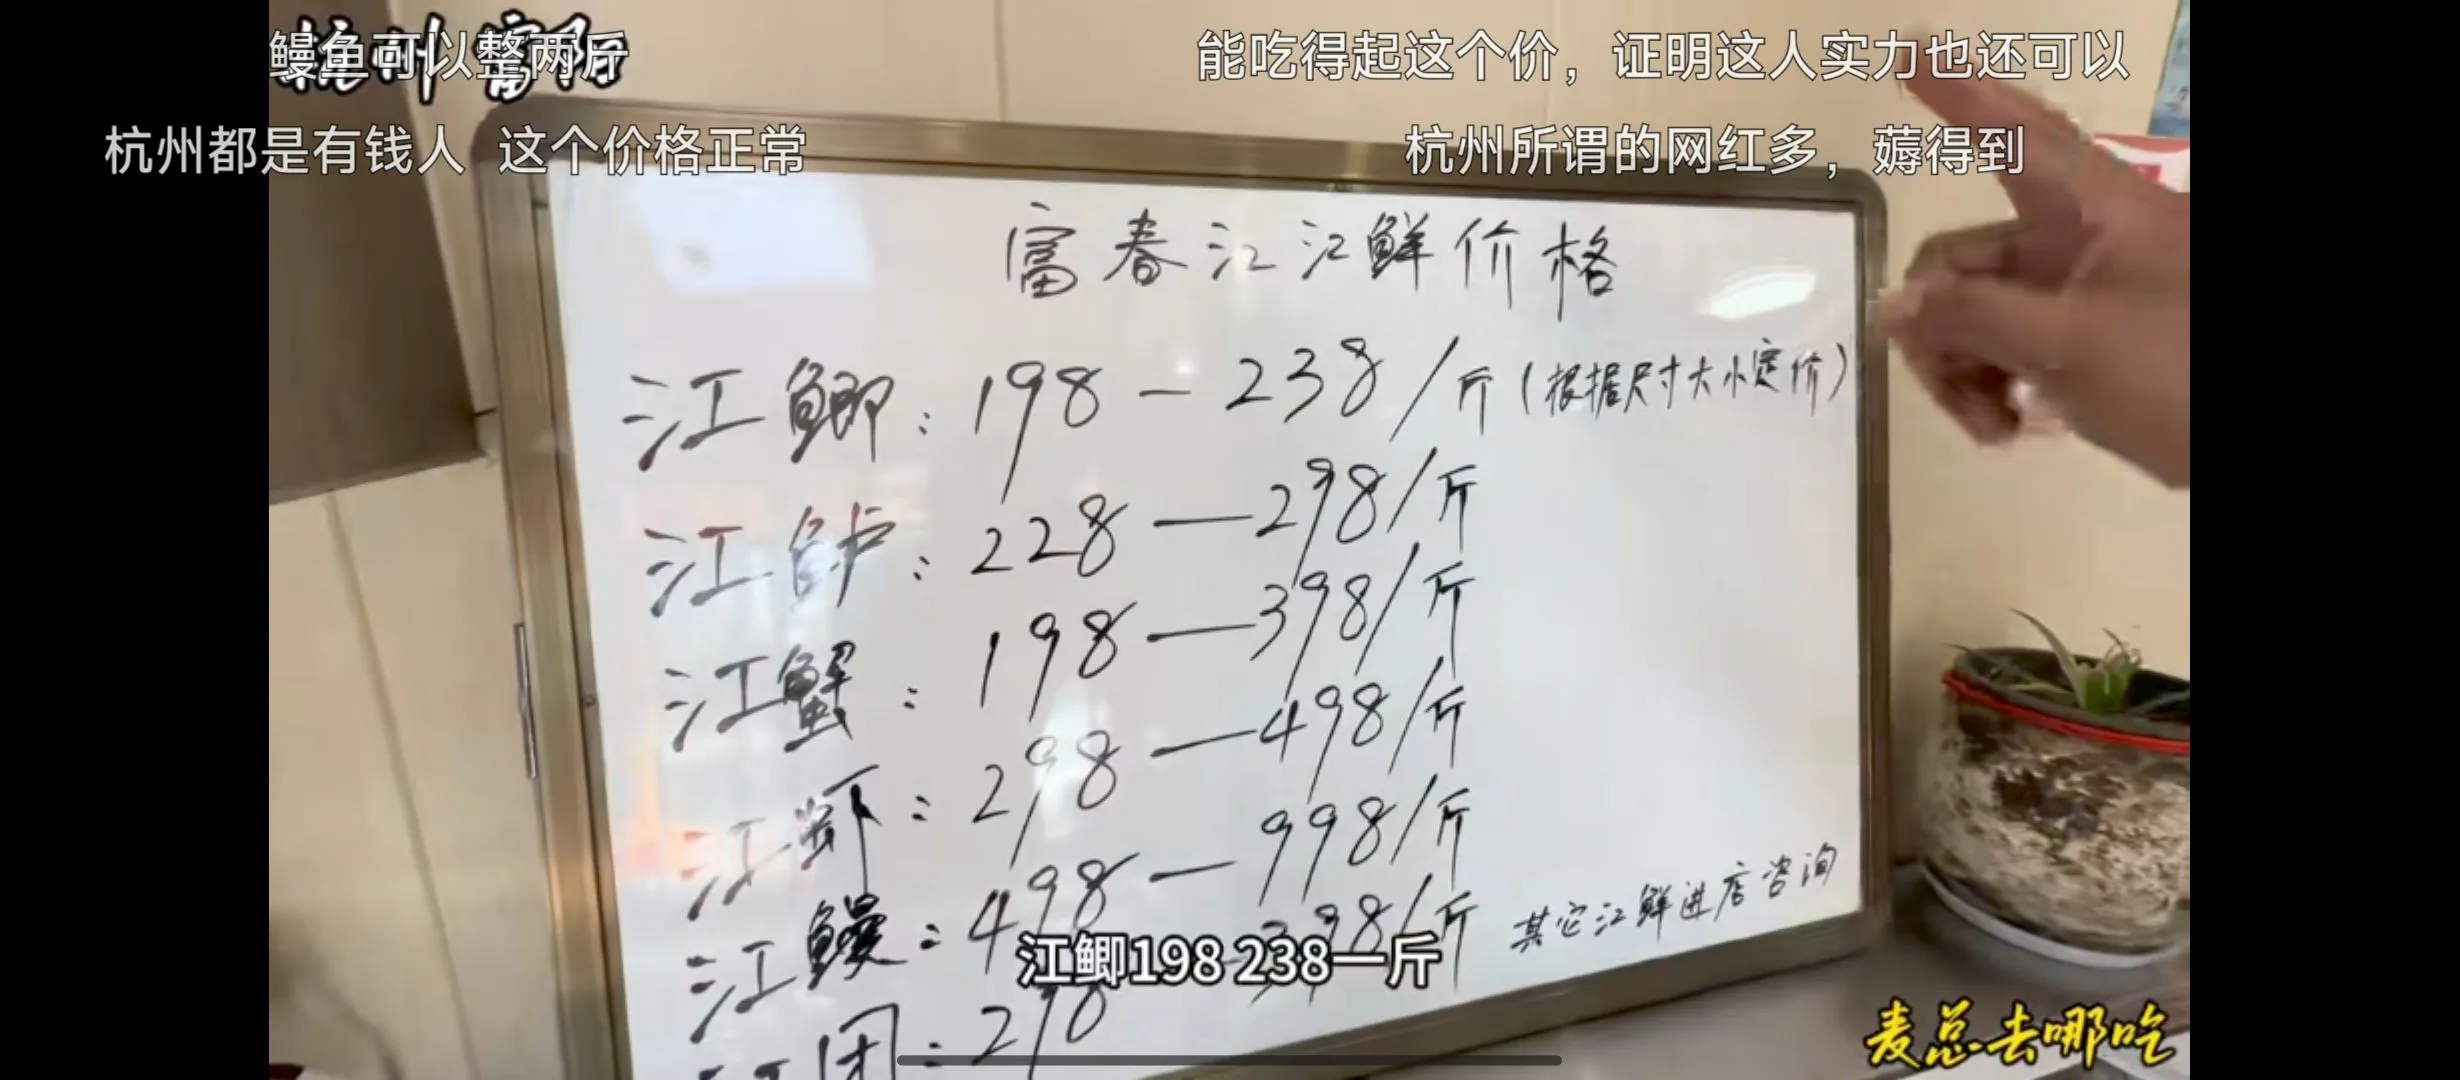 杭州富阳
鳗鱼可以整两斤
能吃得起这个价，证明这人实力也还可以
杭州都是有钱人 这个价格正常
杭州所谓的网红多，薅得到
富春江江鲜价格
江鲫：198－238/斤（根据尺寸大小定价）
江鲈：228－298/斤
江蟹：198－398/斤
江虾：298－498/斤
江鳗：498－998/斤
298 398/斤
其它江鲜进店咨询
江鲫198 238一斤
麦总去哪吃